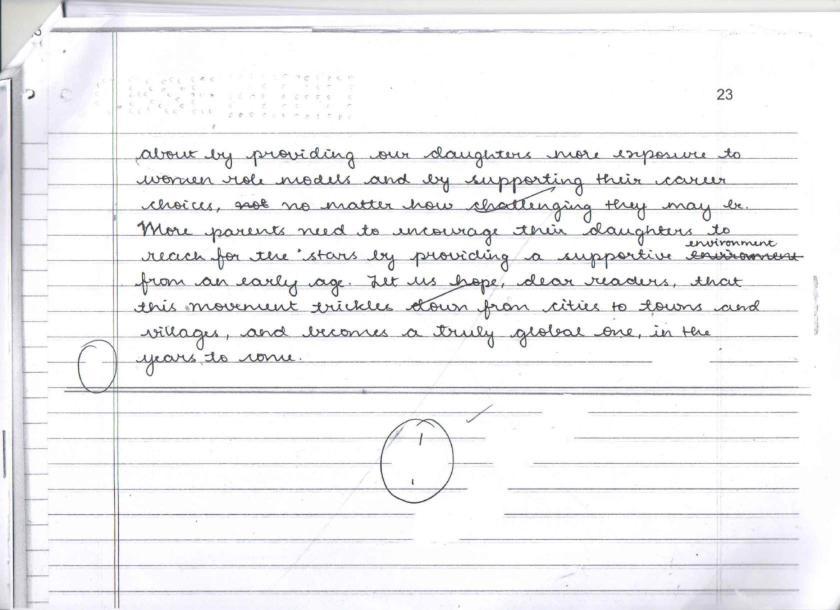 23
about by providing our daughters more exposure to
women role models and by supporting their career
choices, not no matter how challenging they may be.
More parents need to encourage their daughters to
reach for the stars by providing a supportive environment
from an early age. Let us hope, dear readers, that
this movement trickles down from cities to towns and
villages, and becomes a truly global one, in the
years to come.